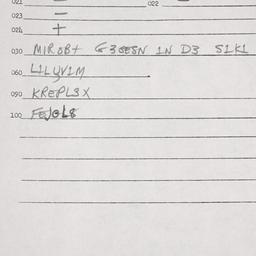 021 — 022 —
023 =
024 +
030 MIRSB+ G3OESN IN D3 S1K1
060 L1LYV1M
090 KREPL3X
100 FEJOL8